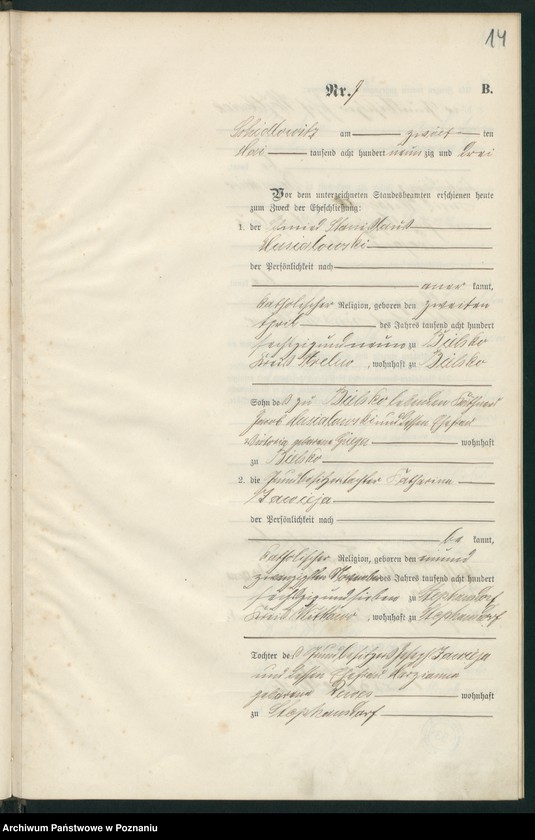 14
Nr. 9 B.
am zweiten
Mai tausend acht hundert neunzig und drei
Vor dem unterzeichneten Standesbeamten erschienen heute
zum Zweck der Eheschließung:
1. der Stanislaus
der Persönlichkeit nach
aner kannt,
katholischer Religion, geboren den zweiten
April des Jahres tausend acht hundert
sechszigundneun zu Bielsko
Kreis , wohnhaft zu Bielsko
Sohn des zu Bielsko lebenden
Jacob und dessen Ehefrau
geborene wohnhaft
zu Bielsko
2. die Grundbesitzertochter Catharina
der Persönlichkeit nach
be kannt,
katholischer Religion, geboren den einund
zwanzigsten November des Jahres tausend acht hundert
sechszigundsieben zu Stephansdorf
Kreis , wohnhaft zu Stephansdorf
Tochter des Grundbesitzers Joseph
und dessen Ehefrau Marianna
geborene wohnhaft
zu Stephansdorf
Archiwum Państwowe w Poznaniu